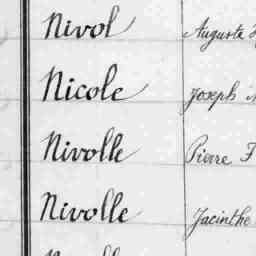 Nivol Auguste
Nicole Joseph
Nivolle Pierre F
Nivolle Jacinthe